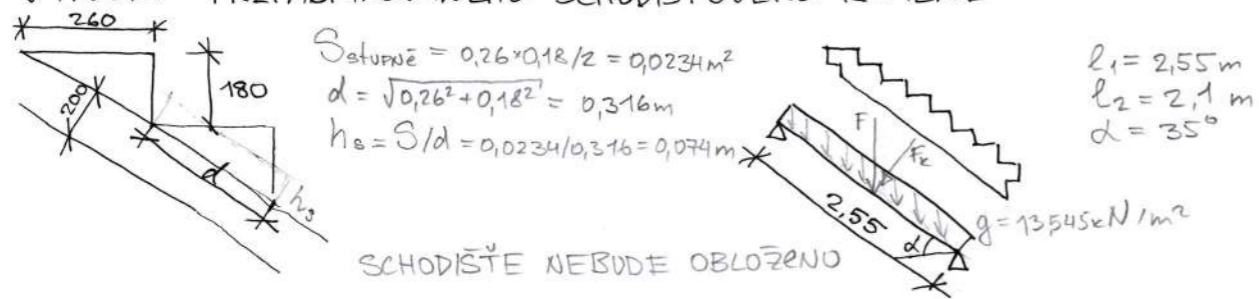 260
180
200
d
hs
Sstupně = 0,26*0,18/2 = 0,0234m²
d = √0,26²+0,18² = 0,316m
hs = S/d = 0,0234/0,316 = 0,074m
SCHODIŠTĚ NEBUDE OBLOŽENO
F
Fk
2,55
α
g=13,545kN/m²
l₁ = 2,55m
l₂ = 2,1 m
α = 35°